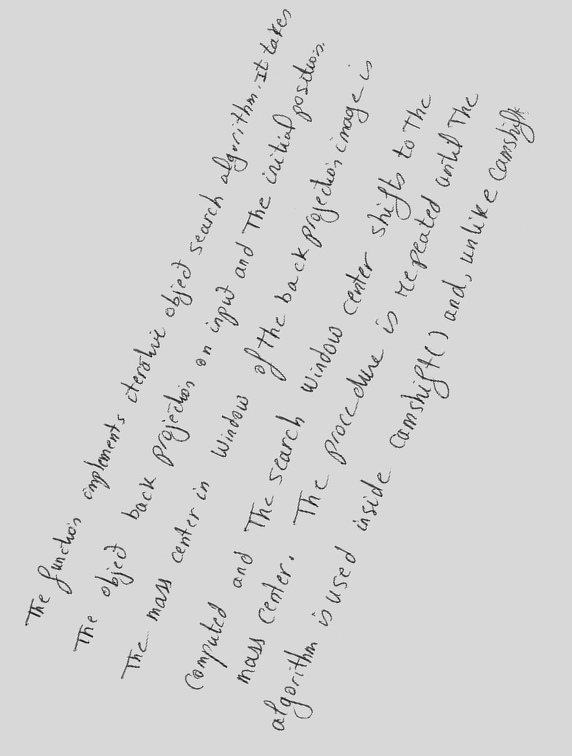 The function implements iterative object search algorithm. It takes
The object back projection on input and The initial position.
The mass center in Window of the back projection image is
Computed and The search window center shifts to the
mass center. The procedure is repeated until The
algorithm is used inside camshift() and, unlike camshift